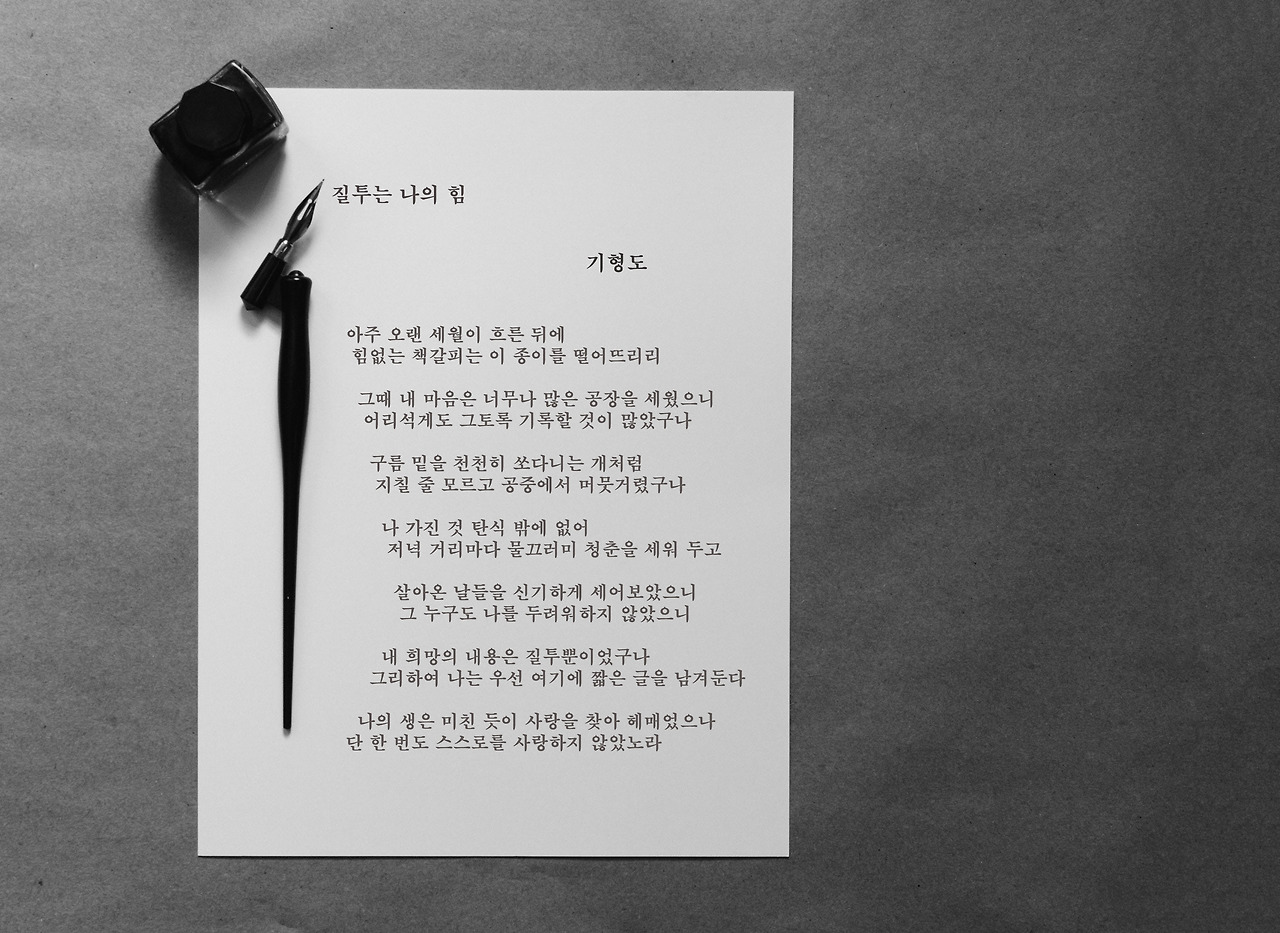 질투는 나의 힘
기형도
아주 오랜 세월이 흐른 뒤에
힘없는 책갈피는 이 종이를 떨어뜨리리
그때 내 마음은 너무나 많은 공장을 세웠으니
어리석게도 그토록 기록할 것이 많았구나
구름 밑을 천천히 쏘다니는 개처럼
지칠 줄 모르고 공중에서 머뭇거렸구나
나 가진 것 탄식 밖에 없어
저녁 거리마다 물끄러미 청춘을 세워 두고
살아온 날들을 신기하게 세어보았으니
그 누구도 나를 두려워하지 않았으니
내 희망의 내용은 질투뿐이었구나
그리하여 나는 우선 여기에 짧은 글을 남겨둔다
나의 생은 미친 듯이 사랑을 찾아 헤매었으나
단 한 번도 스스로를 사랑하지 않았노라